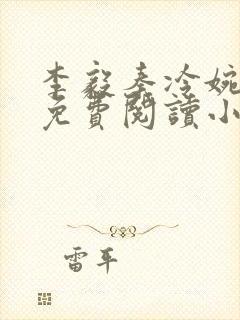 李毅秦冷婉
免費閱讀小
雷平